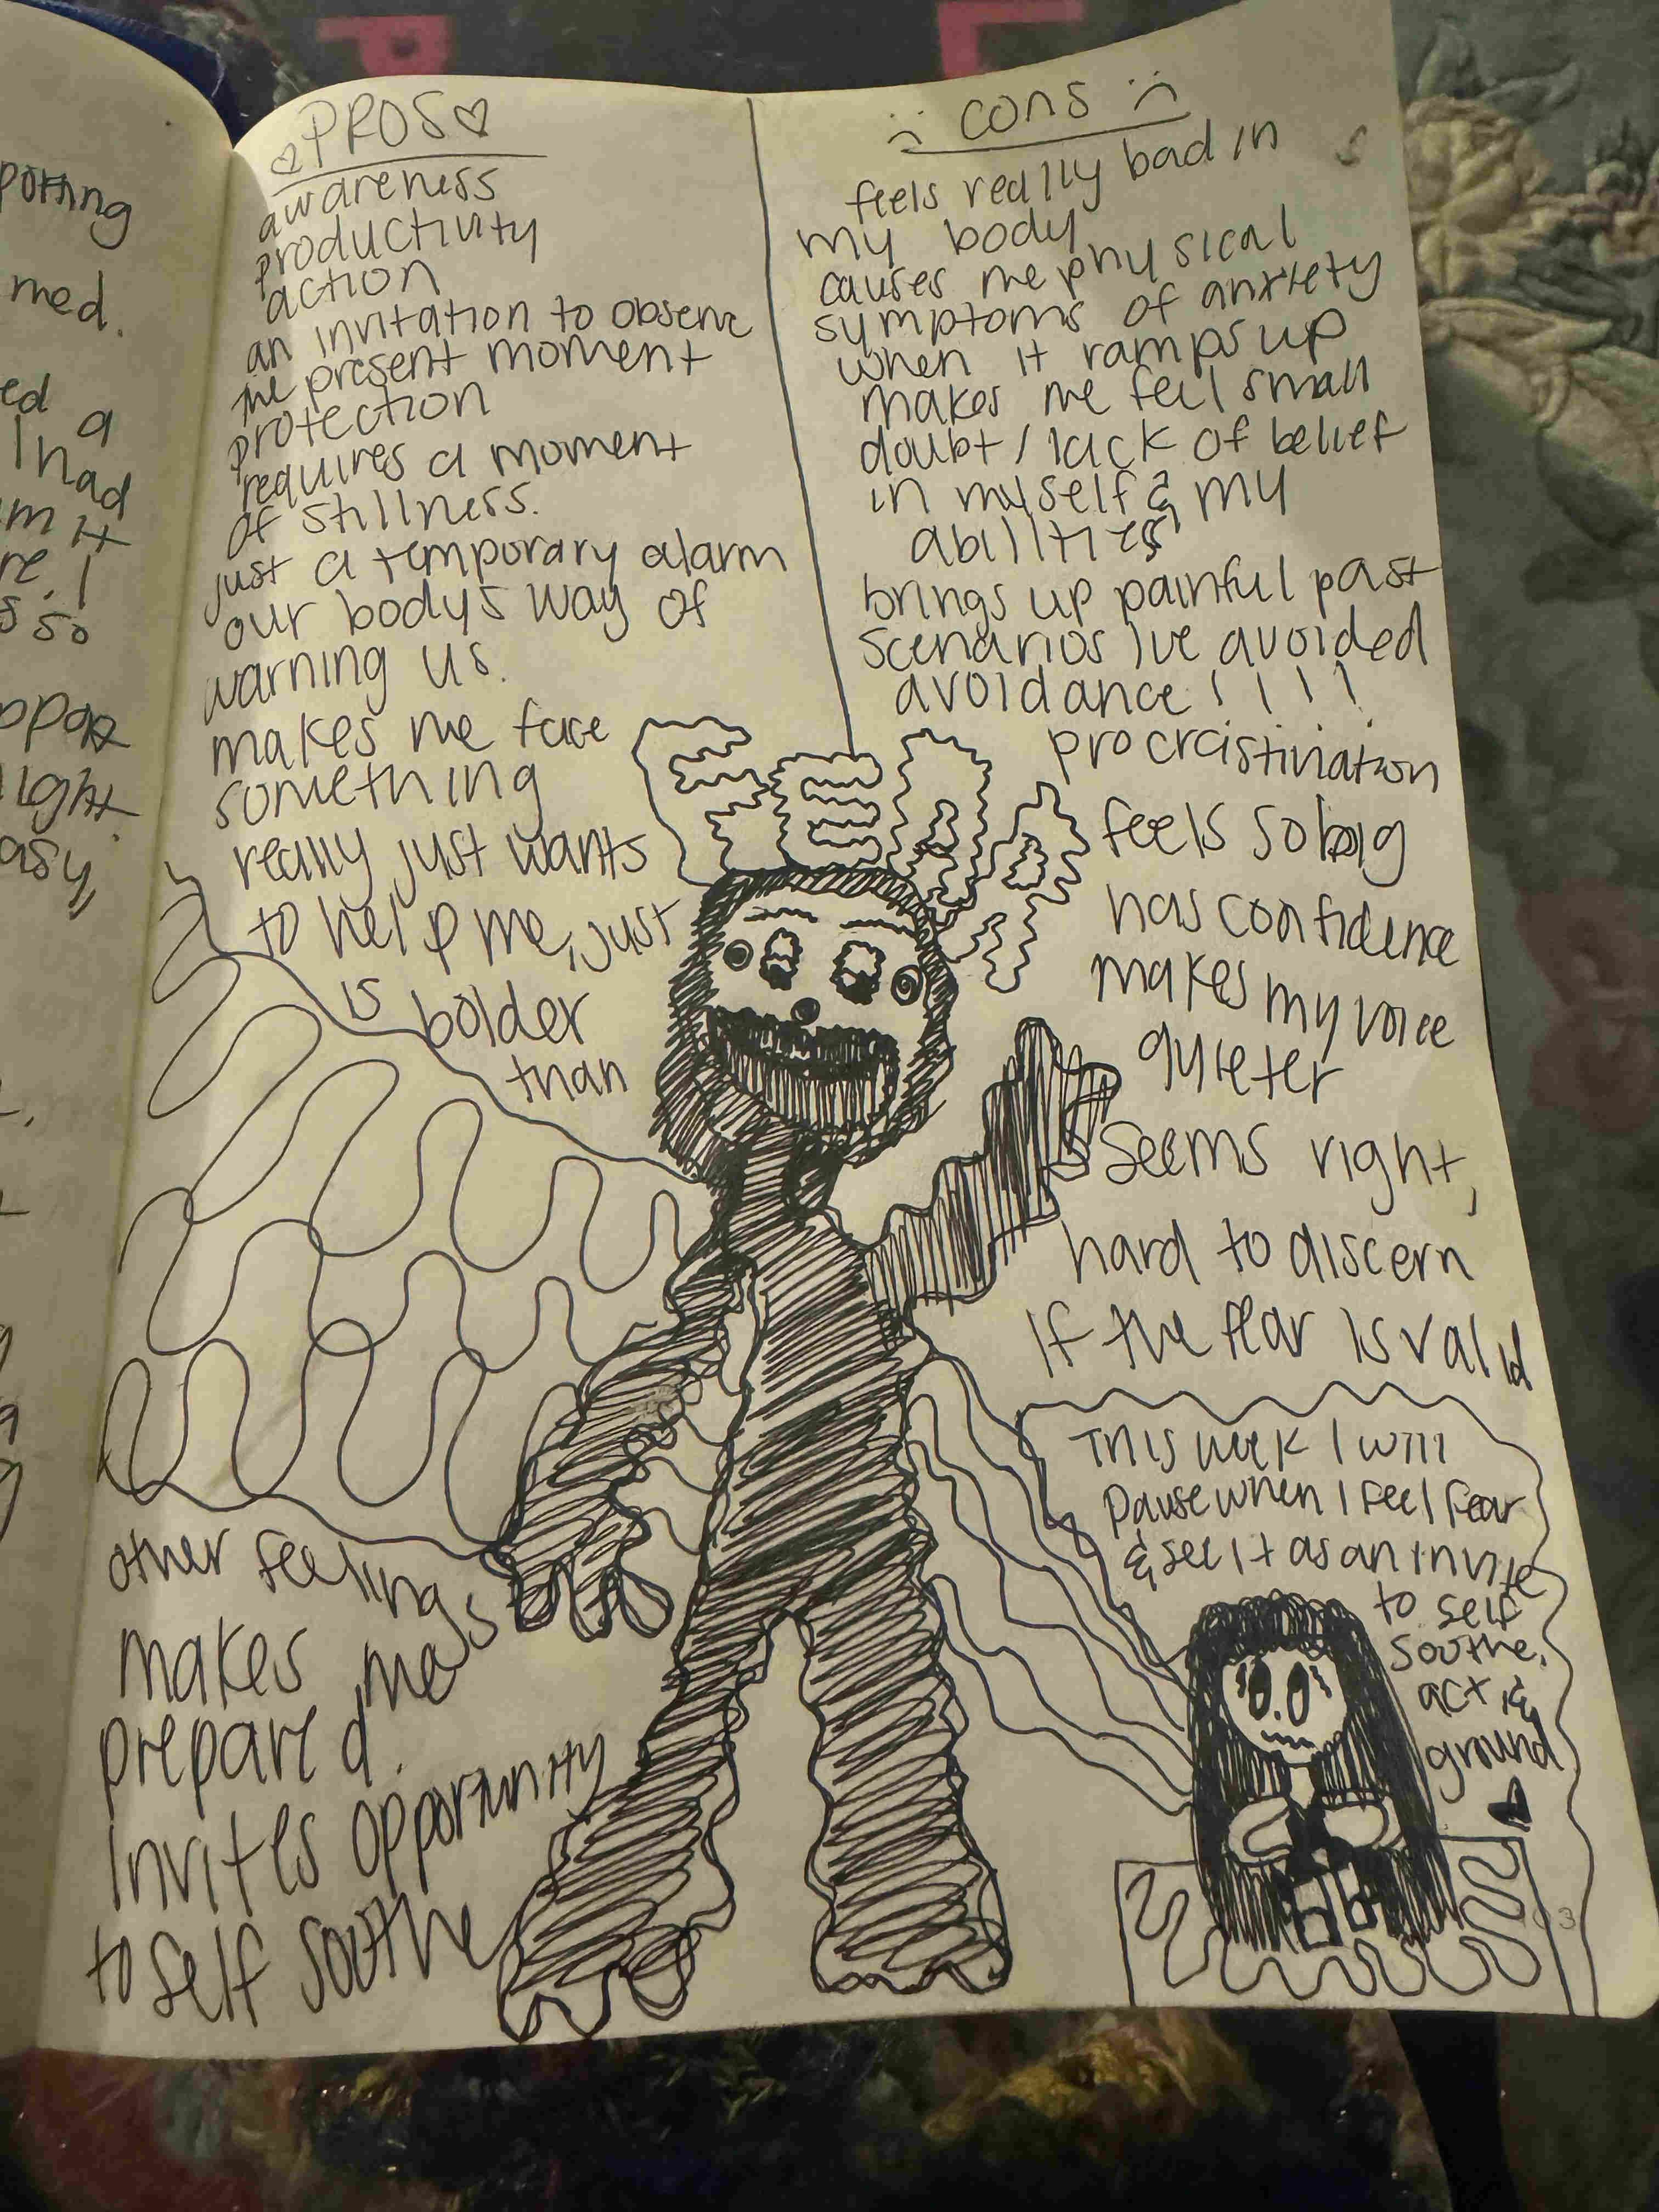 potting
med.
ed a
I had
m it
re. I
s so
light
asy,
PROS
awareness
productivity
action
an invitation to observe
the present moment
protection
requires a moment
of stillness.
just a temporary alarm
our bodys way of
warning us.
makes me face
something
really just wants
to help me, just
is bolder
than
other feelings
makes me
prepared.
invites opportunity
to self soothe
cons
feels really bad in
my body
causes me physical
symptoms of anxiety
when it ramps up
makes me feel small
doubt / lack of belief
in myself & my
abilities
brings up painful past
scenarios ive avoided
avoidance!!!!
procrastination
feels so big
has confidence
makes my voice
quieter
seems right,
hard to discern
if the fear is valid
This week I will
pause when I feel fear
& see it as an invite
to self
soothe,
act &
ground
3
P
L